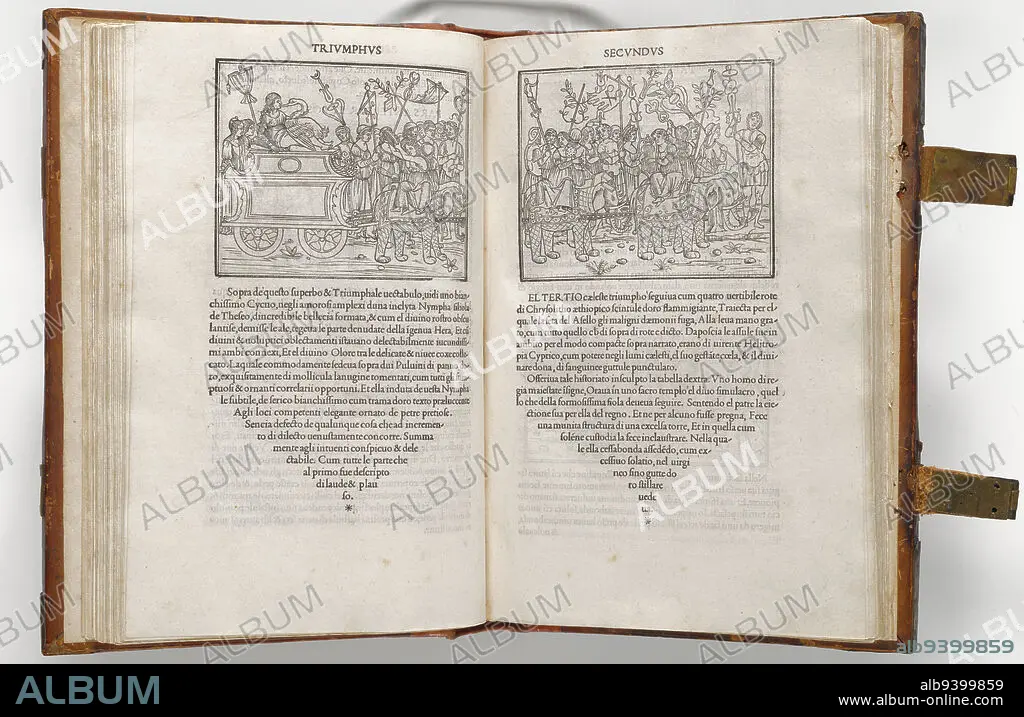 TRIVMPHVS
Sopra de questo superbo & Triumphale uectabulo, uidi uno bian
chissimo Cycno, negli amorosi amplexi duna inclyta Nympha filiola
de Theseo, dincredibile bellecia formata, & cum el diuino rostro obscu
lantise, demisse le ale, tegeua le parte denudate della igenua Hera, Et cũ
diuini & uoluptici oblectamenti istauano delectabilmente iucundissi
mi ambi connexi, Et el diuino Olore tra le delicate & niuee coxe collo
cato. Laquale commodamente sedeua sopra dui Puluini di panno do
ro, exquisitamente di mollicula lanugine tomentati, cum tutti gli sum
ptuosi & ornanti correlarii opportuni. Et ella induta de uesta Nymphale
subtile, de serico bianchissimo cum trama doro texto præluccente
Agli loci competenti elegante ornato de petre pretiose.
Sencia defecto de qualunque cosa che ad incremen-
to di dilecto uenustamente concorre. Summa
mente agli intuenti conspicuo & dele
ctabile. Cum tutte le parte che
al primo fue descripto
di laude & plau
so.
*
SECVNDVS
EL TERTIO cæleste triumpho seguiua cum quatro uertibile rote
di Chrysolitho æthiopico scintule doro flammigiante, Traiecta per el
quale la seta del Asello gli maligni dæmonii fuga, Alla leua mano gra-
to, cum tutto quello ch di sopra di rote e dicto. Daposcia le assule sue in
ambito per el modo compacte sopra narrato, erano di uirente Helitro-
pia Cyprico, cum potere negli lumi cælesti, el suo gestãte cœla, & il diui-
nare dona, di sanguinee guttule punctulato.
Offeriua tale historiato insculpto la tabella dextra. Vno homo di re-
gia maiestate isigne, Oraua in uno sacro templo el diuo simulacro, quel
lo che della formosissima fiola deueua seguire. Sentendo el patre la eie-
ctione sua per ella del regno. Et ne per alcuno fusse pregna, Fece
una munita structura di una excelsa torre, Et in quella cum
solẽne custodia la fece inclaustrare. Nella qua-
le ella cessabonda assedẽdo, cum ex-
cessiuo solatio, nel uirgi
neo sino gutte do
ro stillare
uede
ua.
*
ALBUM
ab9399859
alb9399859
www.album-online.com